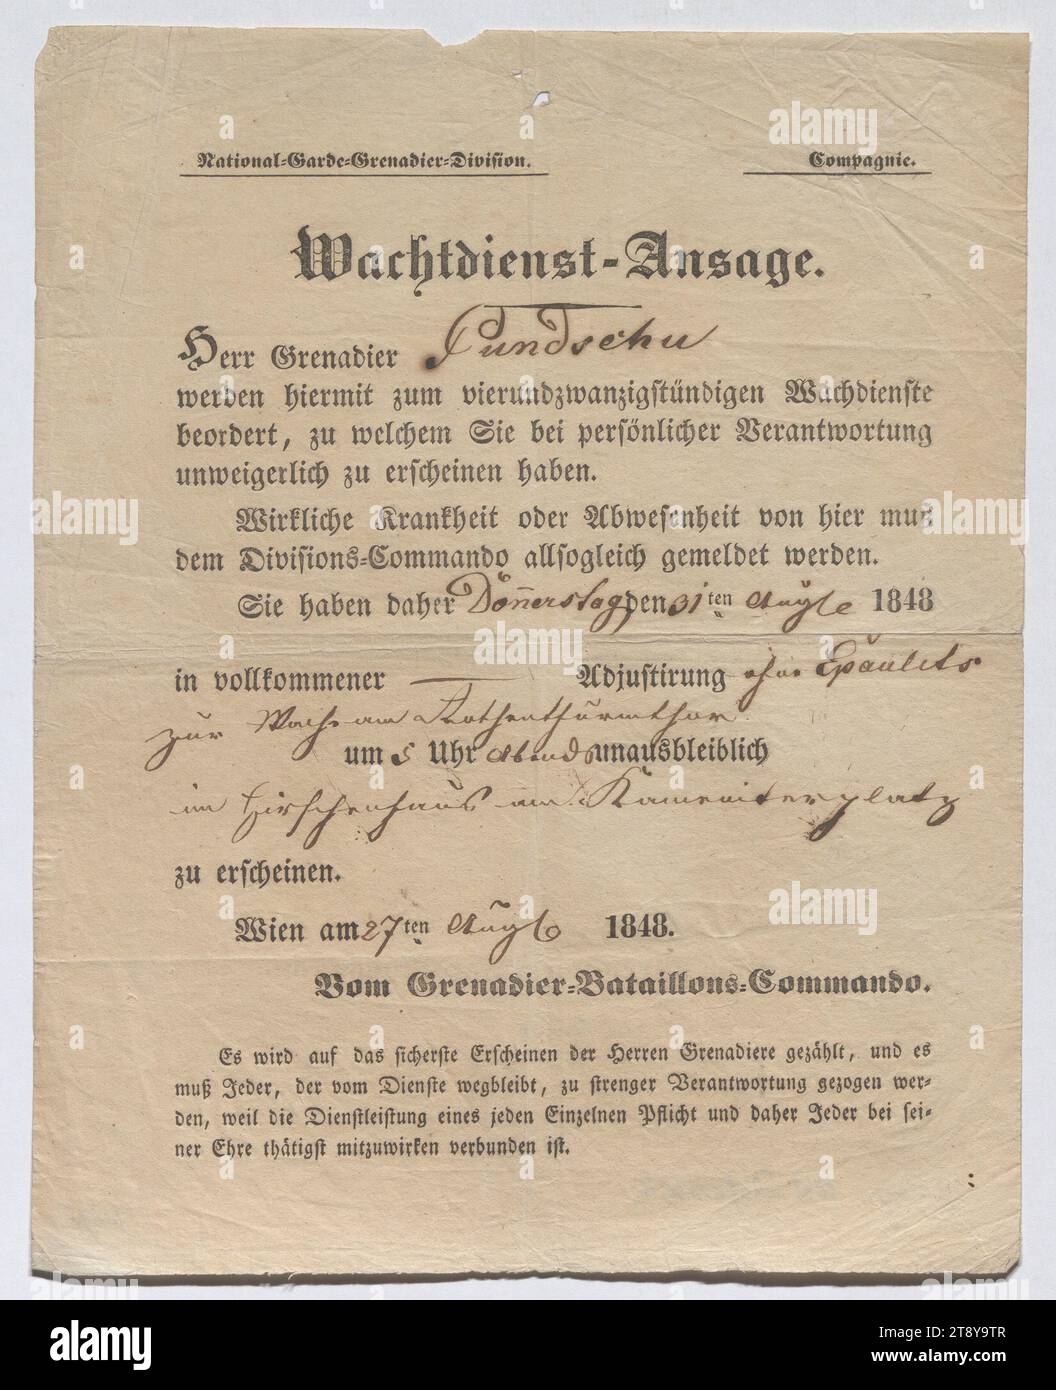 National-Garde-Grenadier-Division. Compagnie.
Wachtdienst-Ansage.
Herr Grenadier Pundschu
werden hiermit zum vierundzwanzigstündigen Wachdienste
beordert, zu welchem Sie bei persönlicher Verantwortung
unweigerlich zu erscheinen haben.
Wirkliche Krankheit oder Abwesenheit von hier muß
dem Divisions-Commando allsogleich gemeldet werden.
Sie haben daher Donnerstag den 31ten Aug 1848
in vollkommener Adjustirung ohne Epaulets
zur Wache am Rothenthurmthor
um 5 Uhr Abends unausbleiblich
im Hirschenhaus am Karmeliterplatz
zu erscheinen.
Wien am 27ten Aug 1848.
Vom Grenadier-Bataillons-Commando.
Es wird auf das sicherste Erscheinen der Herren Grenadiere gezählt, und es
muß Jeder, der vom Dienste wegbleibt, zu strenger Verantwortung gezogen wer-
den, weil die Dienstleistung eines jeden Einzelnen Pflicht und daher Jeder bei sei-
ner Ehre thätigst mitzuwirken verbunden ist.
alamy
Image ID: 2T8Y9TR
www.alamy.com